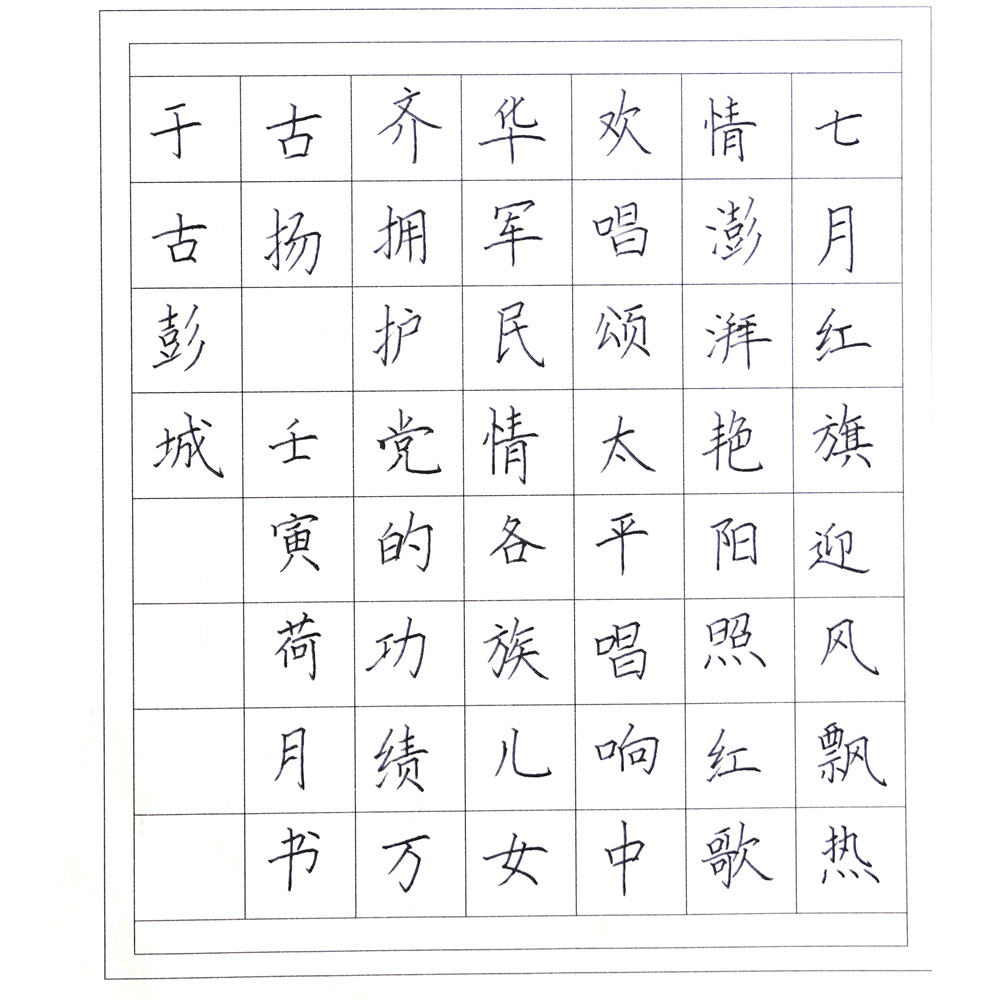 七月红旗迎风飘热
情澎湃艳阳照红歌
欢唱颂太平唱响中
华军民情各族儿女
齐拥护党的功绩万
古扬 壬寅荷月书
于古彭城